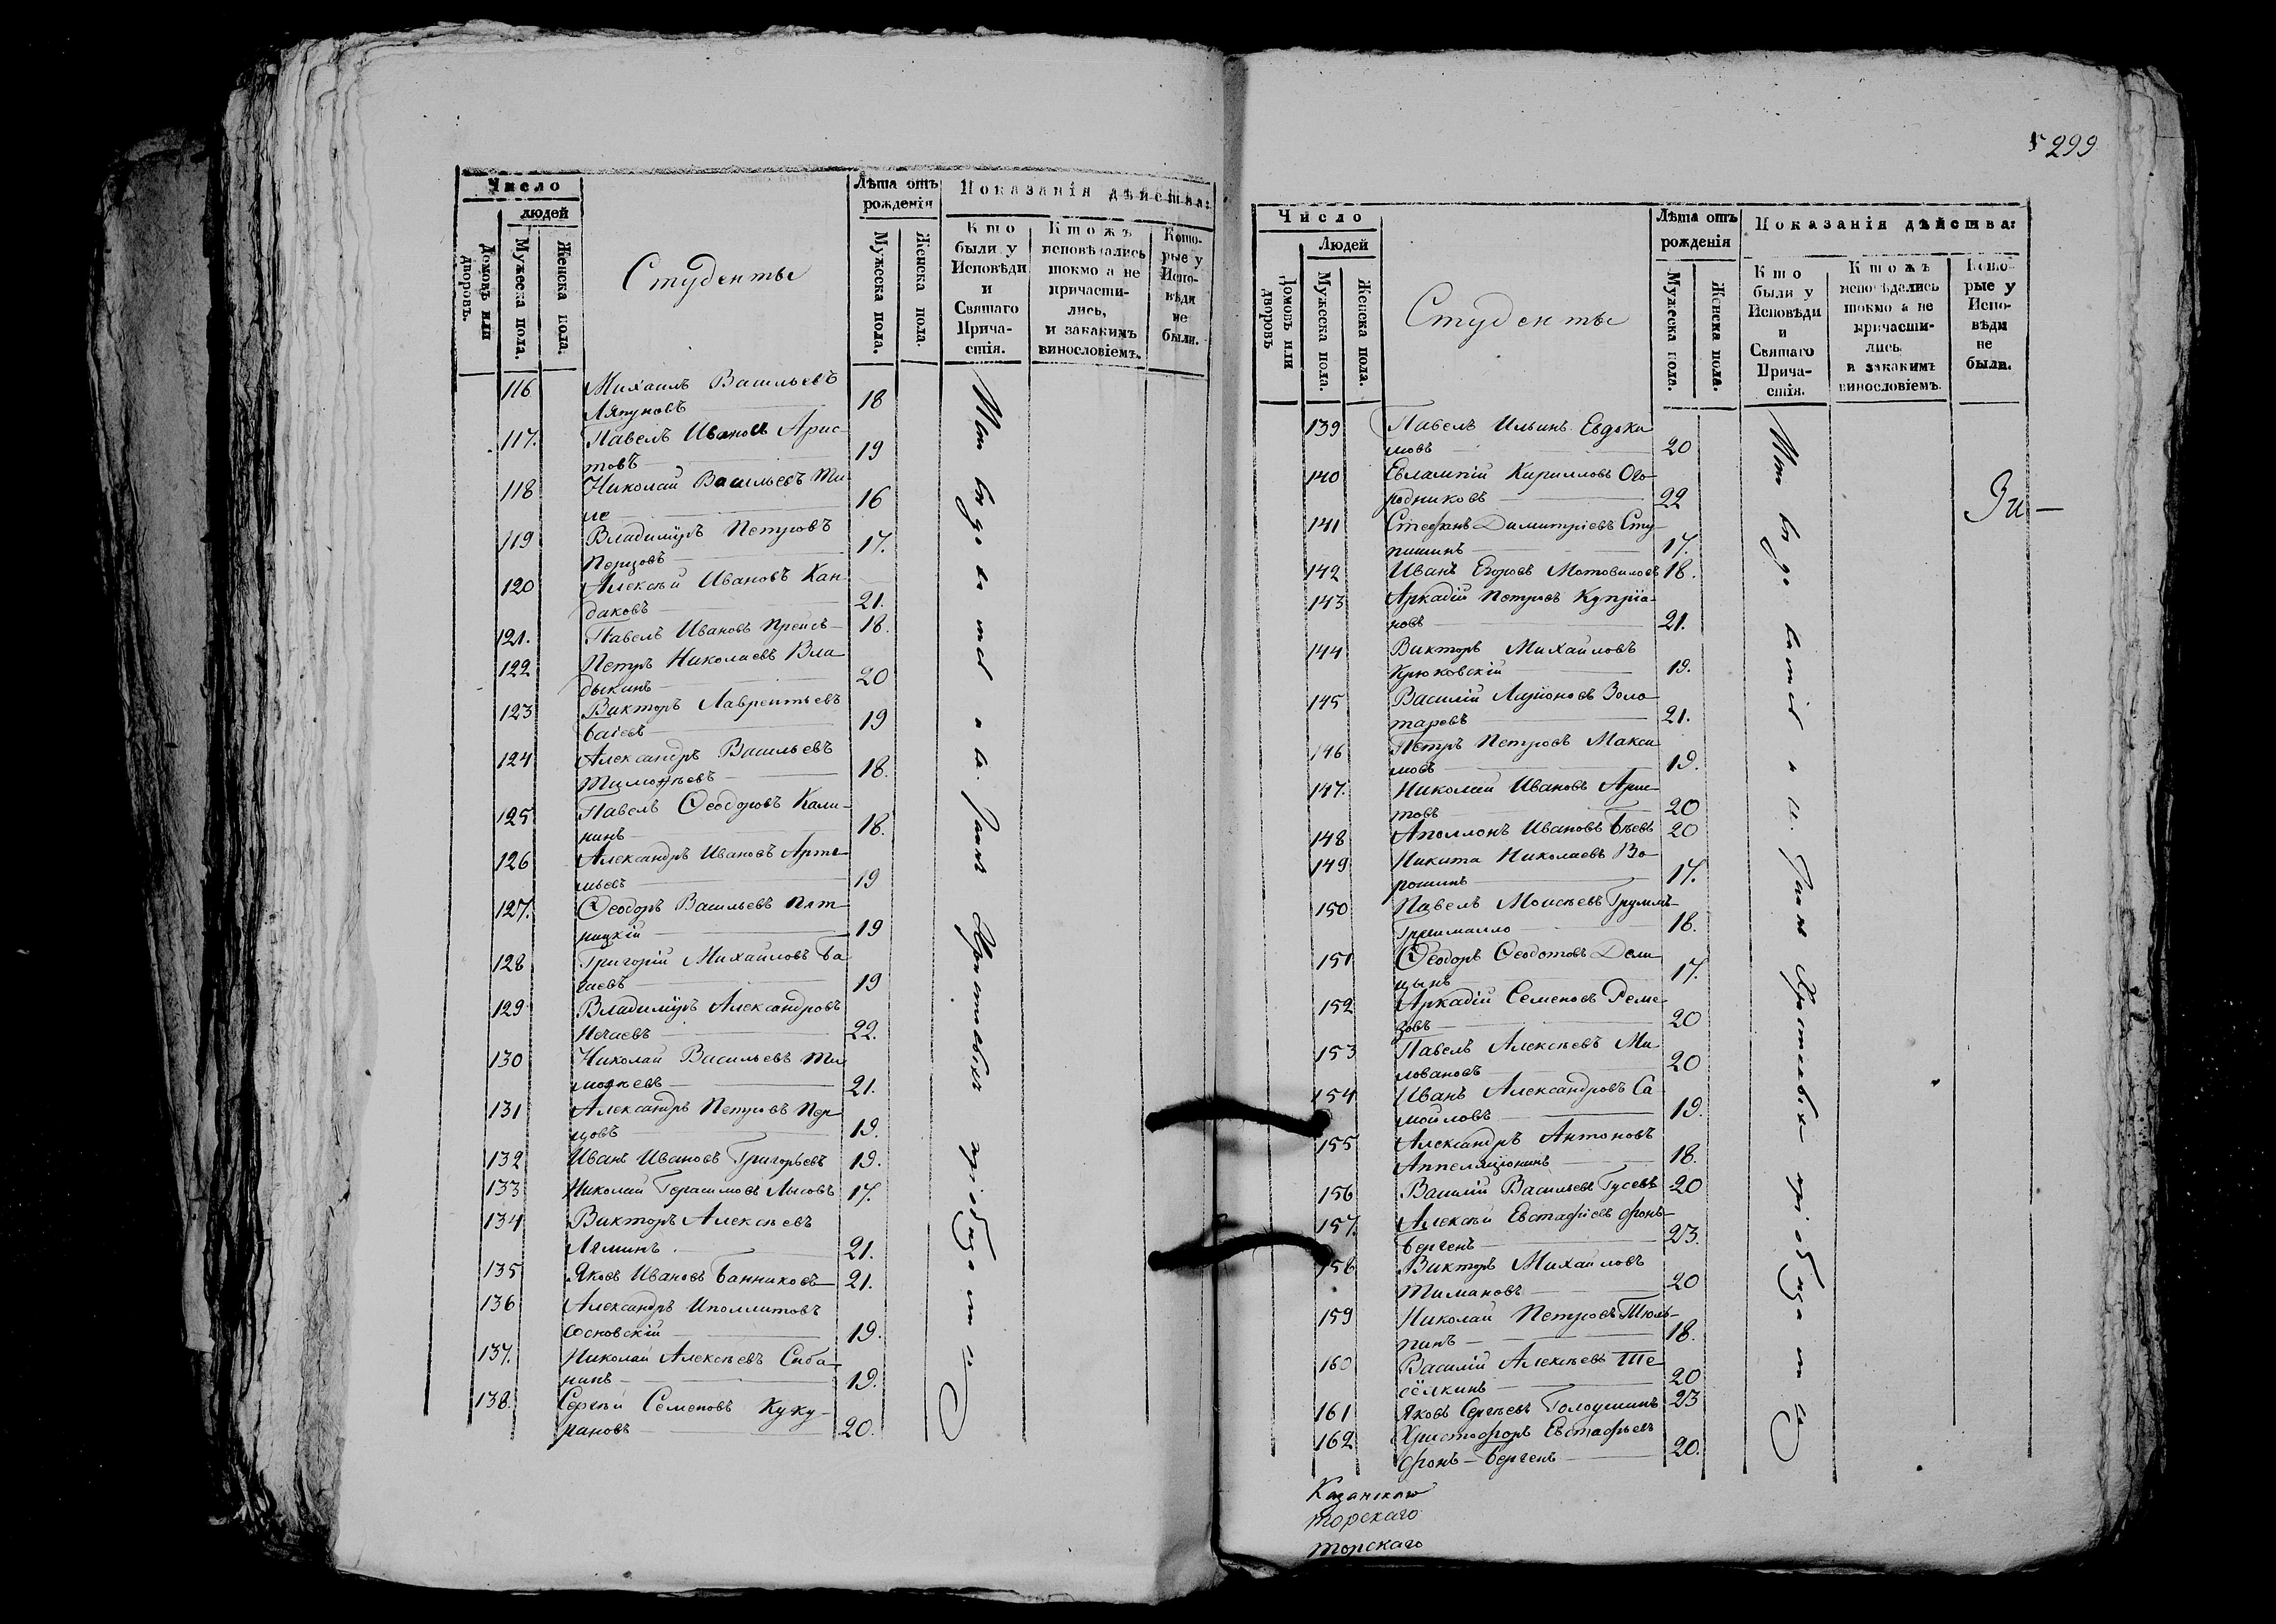 Число
людей
Домовъ или дворовъ.
Мужеска пола.
Женска пола.
Студенты
Лѣта отъ рожденія
Мужеска пола.
Женска пола.
Показанія дѣйства:
Кто были у Исповѣди и Святаго Причастія.
Ктожъ исповѣдались токмо а не причастились, и закакимъ винословіемъ.
Которые у Исповѣди не были.
116 Михаилъ Васильевъ
Ляпуновъ 18
117. Павелъ Ивановъ Арис-
товъ 19
118 Николай Васильевъ Ти
ле 16
119 Владиміръ Петровъ
Перцовъ 17.
120 Алексѣй Ивановъ Кан
даковъ 21.
121. Павелъ Ивановъ Прейсъ 18.
122 Петръ Николаевъ Вла
дыкинъ 20
123 Викторъ Лаврентьевъ
19
124 Александръ Васильевъ
Тимофѣевъ 18.
125 Павелъ Ѳеодоровъ Кали-
нинъ 18.
126 Александръ Ивановъ Арте
мьевъ 19
127. Ѳеодоръ Васильевъ Пят
ницкій 19
128 Григорій Михайловъ Ба
гаевъ 19
129 Владиміръ Александровъ
Нечаевъ 22.
130 Николай Васильевъ Ти
мофѣевъ 21.
131 Александръ Петровъ Пер
цовъ 19.
132 Иванъ Ивановъ Григорьевъ 19.
133 Николай Герасимовъ Лысовъ 17.
134 Викторъ Алексѣевъ
Ляминъ. 21.
135 Яковъ Ивановъ Банниковъ 21.
136 Александръ Иполлитовъ
Сосновскій 19.
137. Николай Алексѣевъ Саба
нинъ 19.
138. Сергѣй Семеновъ Куку-
рановъ 20.
299
Число
Людей
Домовъ или дворовъ
Мужеска пола.
Женска пола.
Студенты
Лѣта отъ рожденія
Мужеска пола.
Женска пола.
Показанія дѣйства:
Кто были у Исповѣди и Святаго Причастія.
Ктожъ исповѣдались токмо а не причастились и закакимъ винословіемъ.
Которые у Исповѣди не были.
139 Павелъ Ильинъ Евдоки
мовъ 20
140 Евлампій Кирилловъ Ого-
родниковъ 22
141 Стефанъ Димитріевъ Сту-
пишинъ 17.
142 Иванъ Егоровъ Мотовиловъ 18.
143 Аркадій Петровъ Купрія-
новъ 21.
144 Викторъ Михайловъ
Крюковскій 19.
145 Василій Ларіоновъ Золо
таревъ 21.
146 Петръ Петровъ Макси
мовъ 19.
147. Николай Ивановъ Арис
товъ 20
148 Аполлонъ Ивановъ Бѣевъ 20
149 Никита Николаевъ Во-
рошинъ 17.
150 Павелъ Моисѣевъ Груммъ-
Гржимайло 18.
151 Ѳеодоръ Ѳеодотовъ Доли
цынъ 17.
152 Аркадій Семеновъ Реме
зовъ 20
153 Павелъ Алексѣевъ Ми
ловановъ 20
154 Иванъ Александровъ Са
мойловъ 19.
155 Александръ Антоновъ
Аппеляціонинъ 18.
156 Василій Васильевъ Гусевъ 20
157. Алексѣй Евстафіевъ фонъ-
Бергенъ 23.
158 Викторъ Михайловъ
Тимановъ 20
159 Николай Петровъ Тюль-
пинъ 18.
160 Василій Алексѣевъ Ше
сёлкинъ 20
161 Яковъ Сергѣевъ Голоушинъ 23
162 Христофоръ Евстафьевъ
фонъ-Бергенъ 20.
Казанскаго
торскаго
торскаго